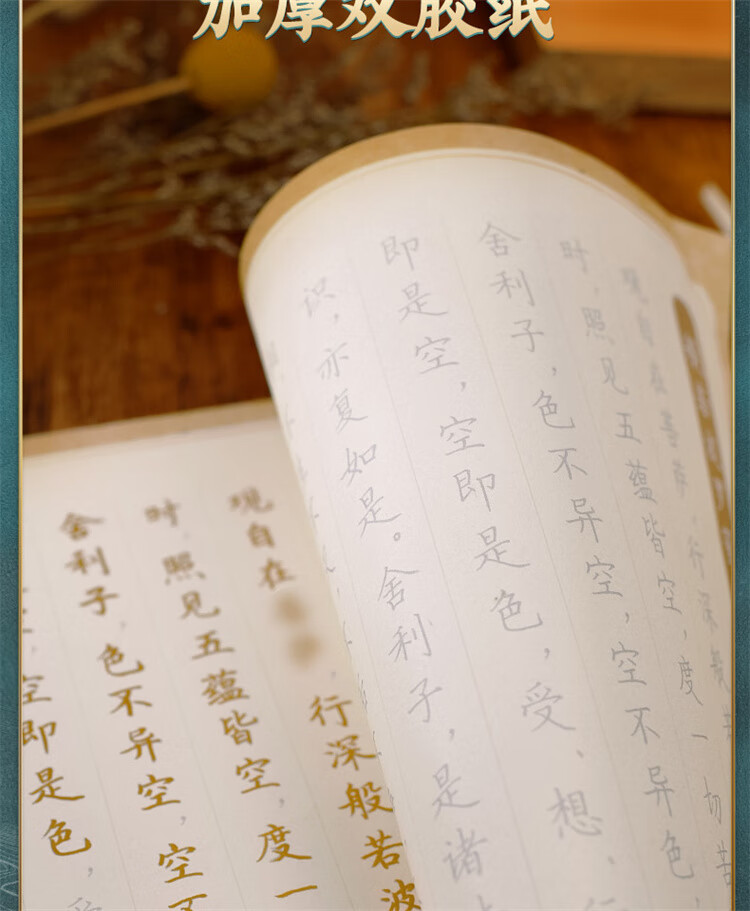 加厚双胶纸
观自在菩萨，行深般若
时，照见五蕴皆空，度一切苦
舍利子，色不异空，空不异色，
即是空，空即是色，受、想、行
识，亦复如是。舍利子，是诸
观自在，行深般若波
时，照见五蕴皆空，度一
舍利子，色不异空，空不
空即是色，受